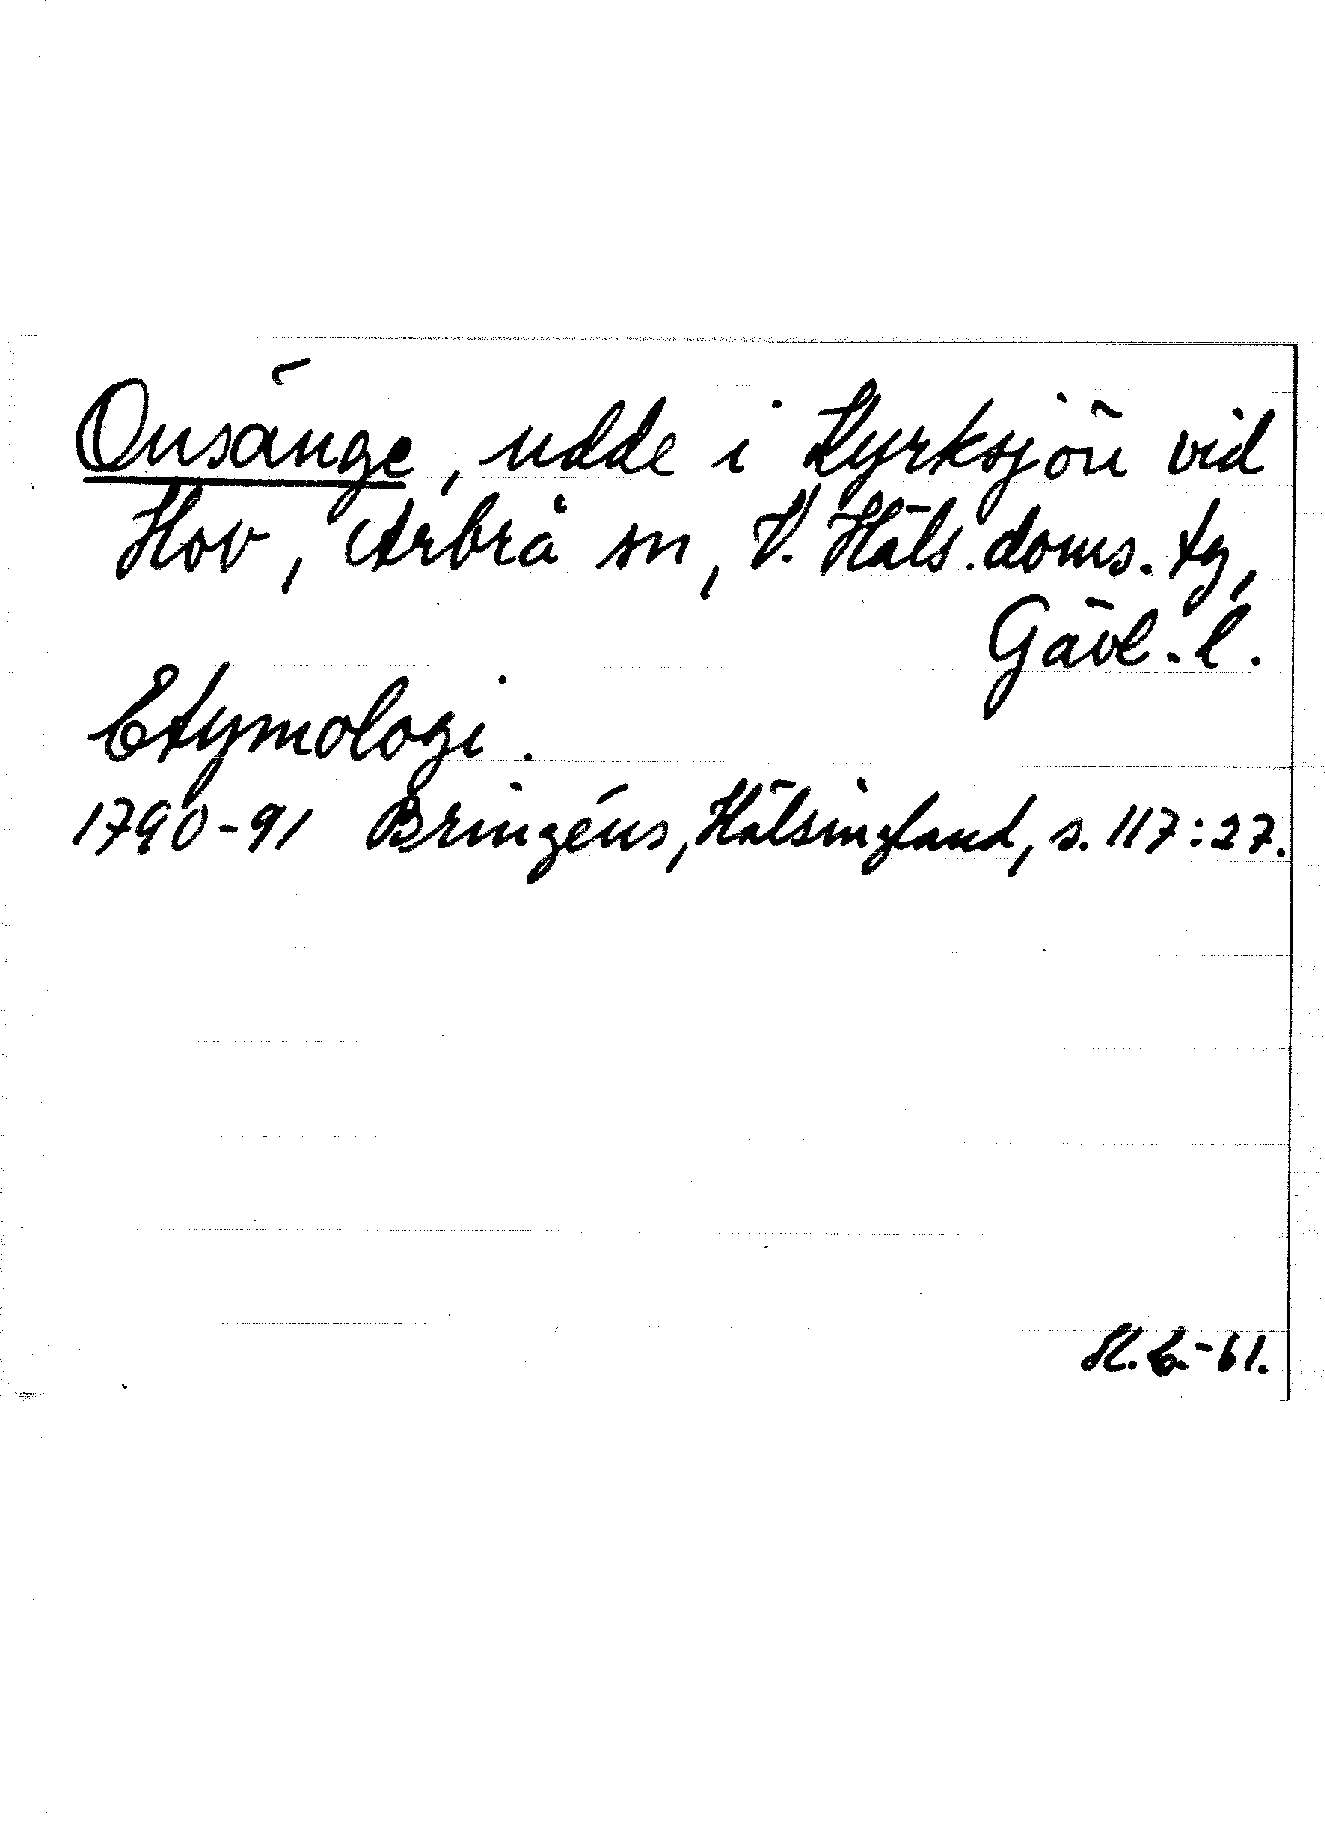 Onsänge, udde i Kyrksjön vid
Hov, Arbrå sn, V. Häls. doms. tg,
Gävl. l.
Etymologi.
1790-91 Bringéus, Hälsingland, s. 117:27.
-61.